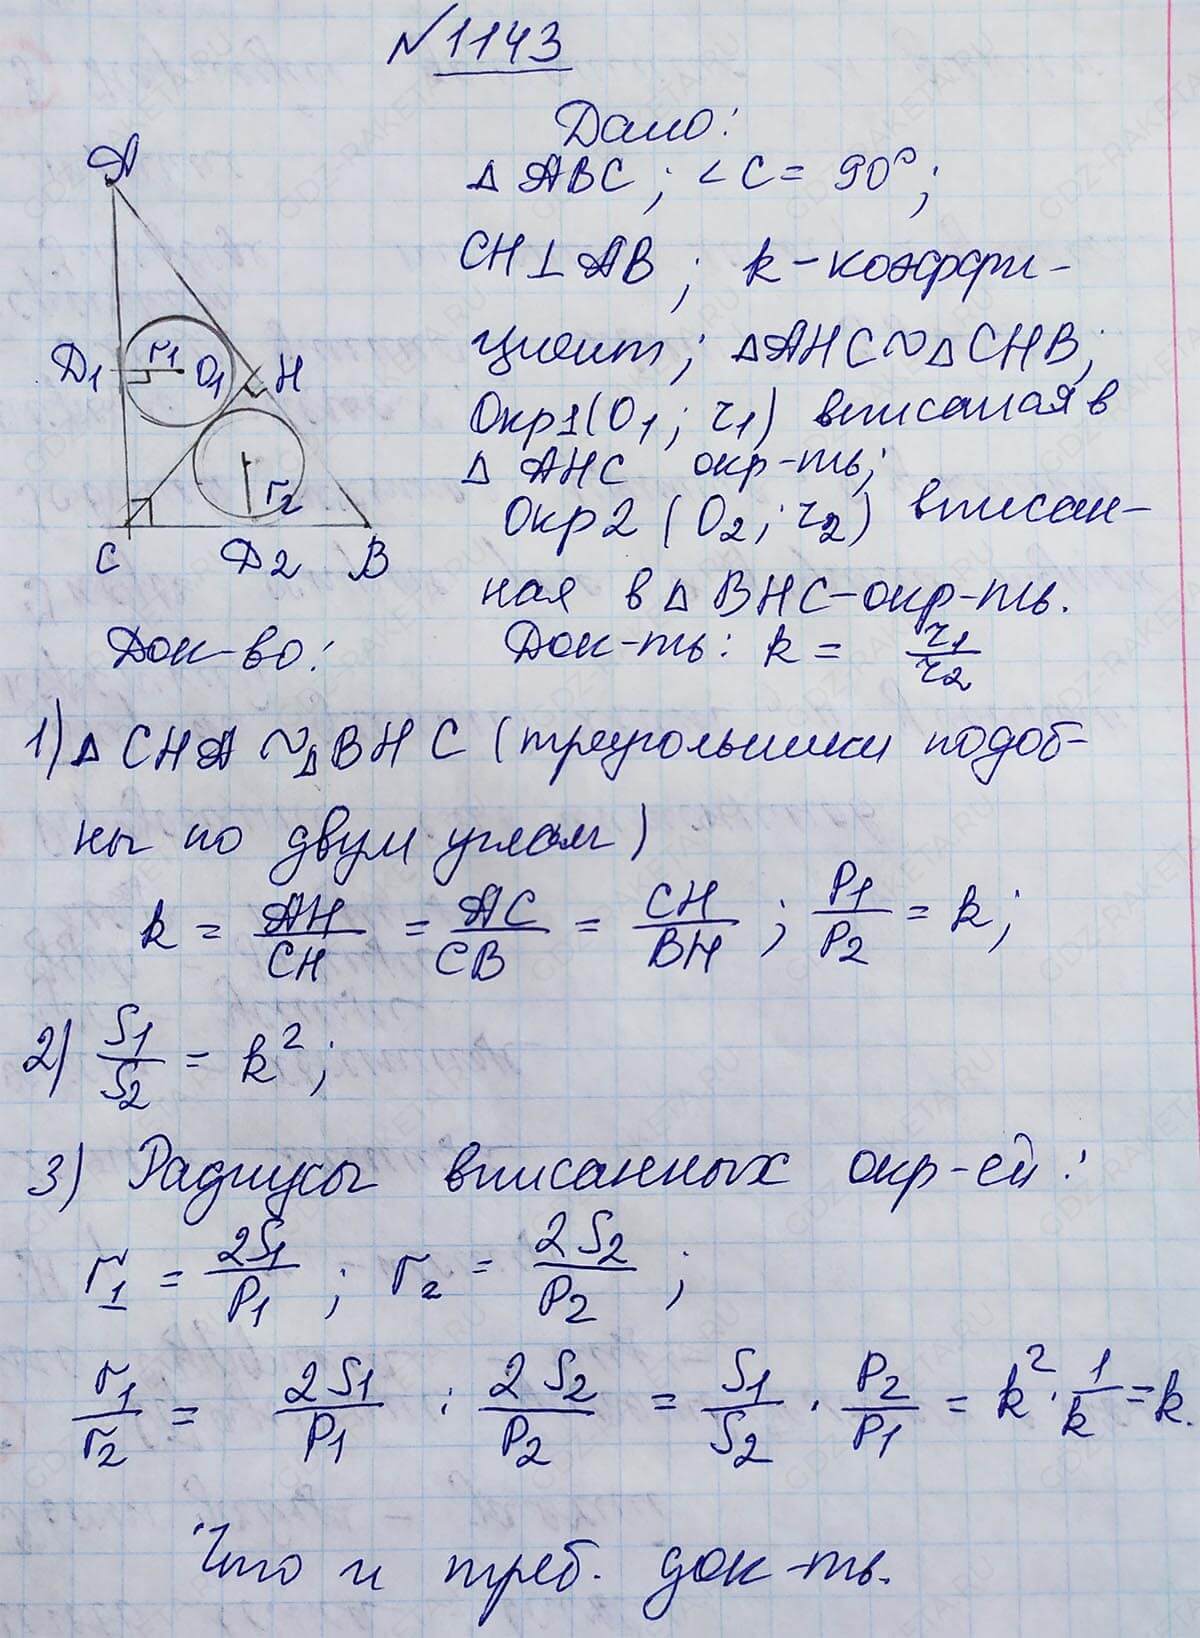 №1143
Дано:
△ ABC; ∠C = 90°;
CH⊥AB; k - коэффи-
циент; △AHC∾△CHB;
Окр1(O₁; r₁) вписаная в
△ AHC окр-ть;
Окр2 (O₂; r₂) вписан-
ная в △ BHC-окр-ть.
Док-ть: k = r₁/r₂
A
D₁
r₁
O₁
H
r₂
C
D₂
B
Док-во:
1) △ CHA ∾ △BHC (треугольники подоб-
ны по двум углам)
k = AH/CH = AC/CB = CH/BH; P₁/P₂ = k;
2) S₁/S₂ = k²;
3) Радиусы вписанных окр-ей:
r₁ = 2S₁/P₁; r₂ = 2S₂/P₂;
r₁/r₂ = 2S₁/P₁ : 2S₂/P₂ = S₁/S₂ · P₂/P₁ = k² · 1/k = k.
Что и треб. док-ть.
GDZ-RAKETA.RU